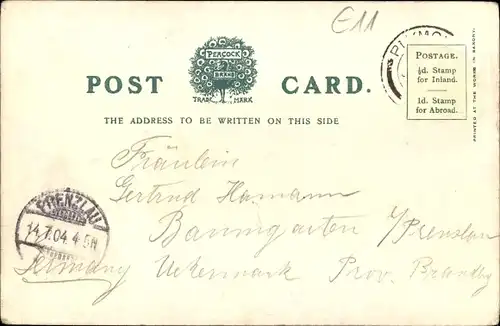 E11
PLYMO
PEACOCK
BRAND
TRADE MARK
POST CARD.
POSTAGE.
½d. Stamp
for Inland.
1d. Stamp
for Abroad.
PRINTED AT THE WORKS IN SAXONY.
THE ADDRESS TO BE WRITTEN ON THIS SIDE
Fräulein
Gertrud Hamann
Baumgarten b/Prenzlau
Germany Uckermark Prov. Brandbg
PRENZLAU
14.7.04. 4-5N